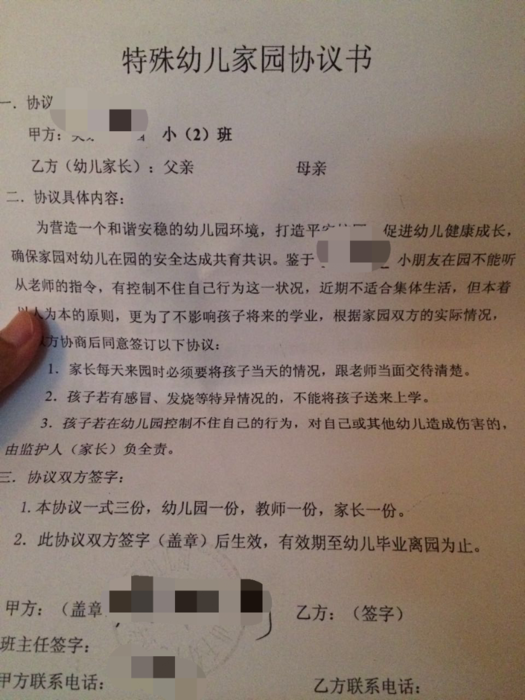 特殊幼儿家园协议书
一. 协议
甲方: 小（2）班
乙方（幼儿家长）: 父亲 母亲
二. 协议具体内容:
为营造一个和谐安稳的幼儿园环境，打造平安 促进幼儿健康成长，
确保家园对幼儿在园的安全达成共育共识。鉴于 小朋友在园不能听
从老师的指令，有控制不住自己行为这一状况，近期不适合集体生活，但本着
人为本的原则，更为了不影响孩子将来的学业，根据家园双方的实际情况，
方协商后同意签订以下协议:
1. 家长每天来园时必须要将孩子当天的情况，跟老师当面交待清楚。
2. 孩子若有感冒、发烧等特异情况的，不能将孩子送来上学。
3. 孩子若在幼儿园控制不住自己的行为，对自己或其他幼儿造成伤害的，
由监护人（家长）负全责。
三. 协议双方签字:
1. 本协议一式三份，幼儿园一份，教师一份，家长一份。
2. 此协议双方签字（盖章）后生效，有效期至幼儿毕业离园为止。
甲方:（盖章 ） 乙方:（签字）
班主任签字:
甲方联系电话: 乙方联系电话: